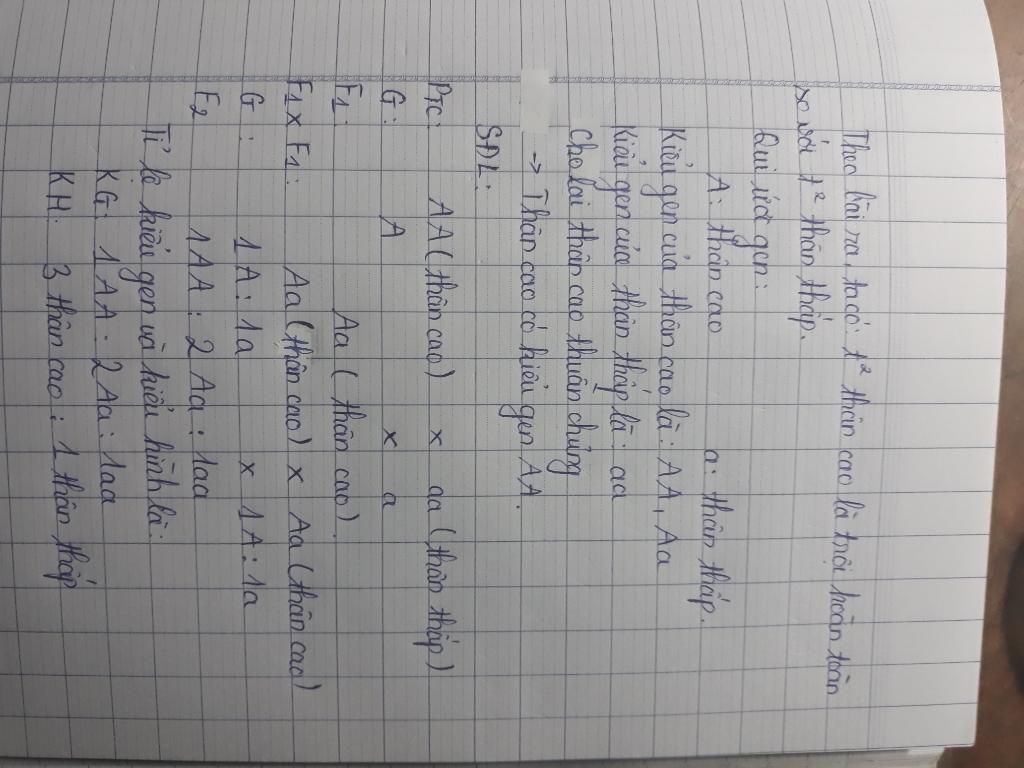 Theo bài ra, ta có: t² thân cao là trội hoàn toàn
so với t² thân thấp.
Qui ước gen:
A: thân cao a: thân thấp.
Kiểu gen của thân cao là: AA, Aa
Kiểu gen của thân thấp là: aa
Cho lai thân cao thuần chủng
→ Thân cao có kiểu gen AA.
SĐL:
PTC: AA (thân cao) x aa (thân thấp)
G: A x a
F1: Aa (thân cao).
F1 x F1: Aa (thân cao) x Aa (thân cao)
G: 1A : 1a x 1A : 1a
F2 1AA : 2Aa : 1aa
Tỉ lệ kiểu gen và kiểu hình là:
KG: 1AA : 2Aa : 1aa
KH: 3 thân cao : 1 thân thấp